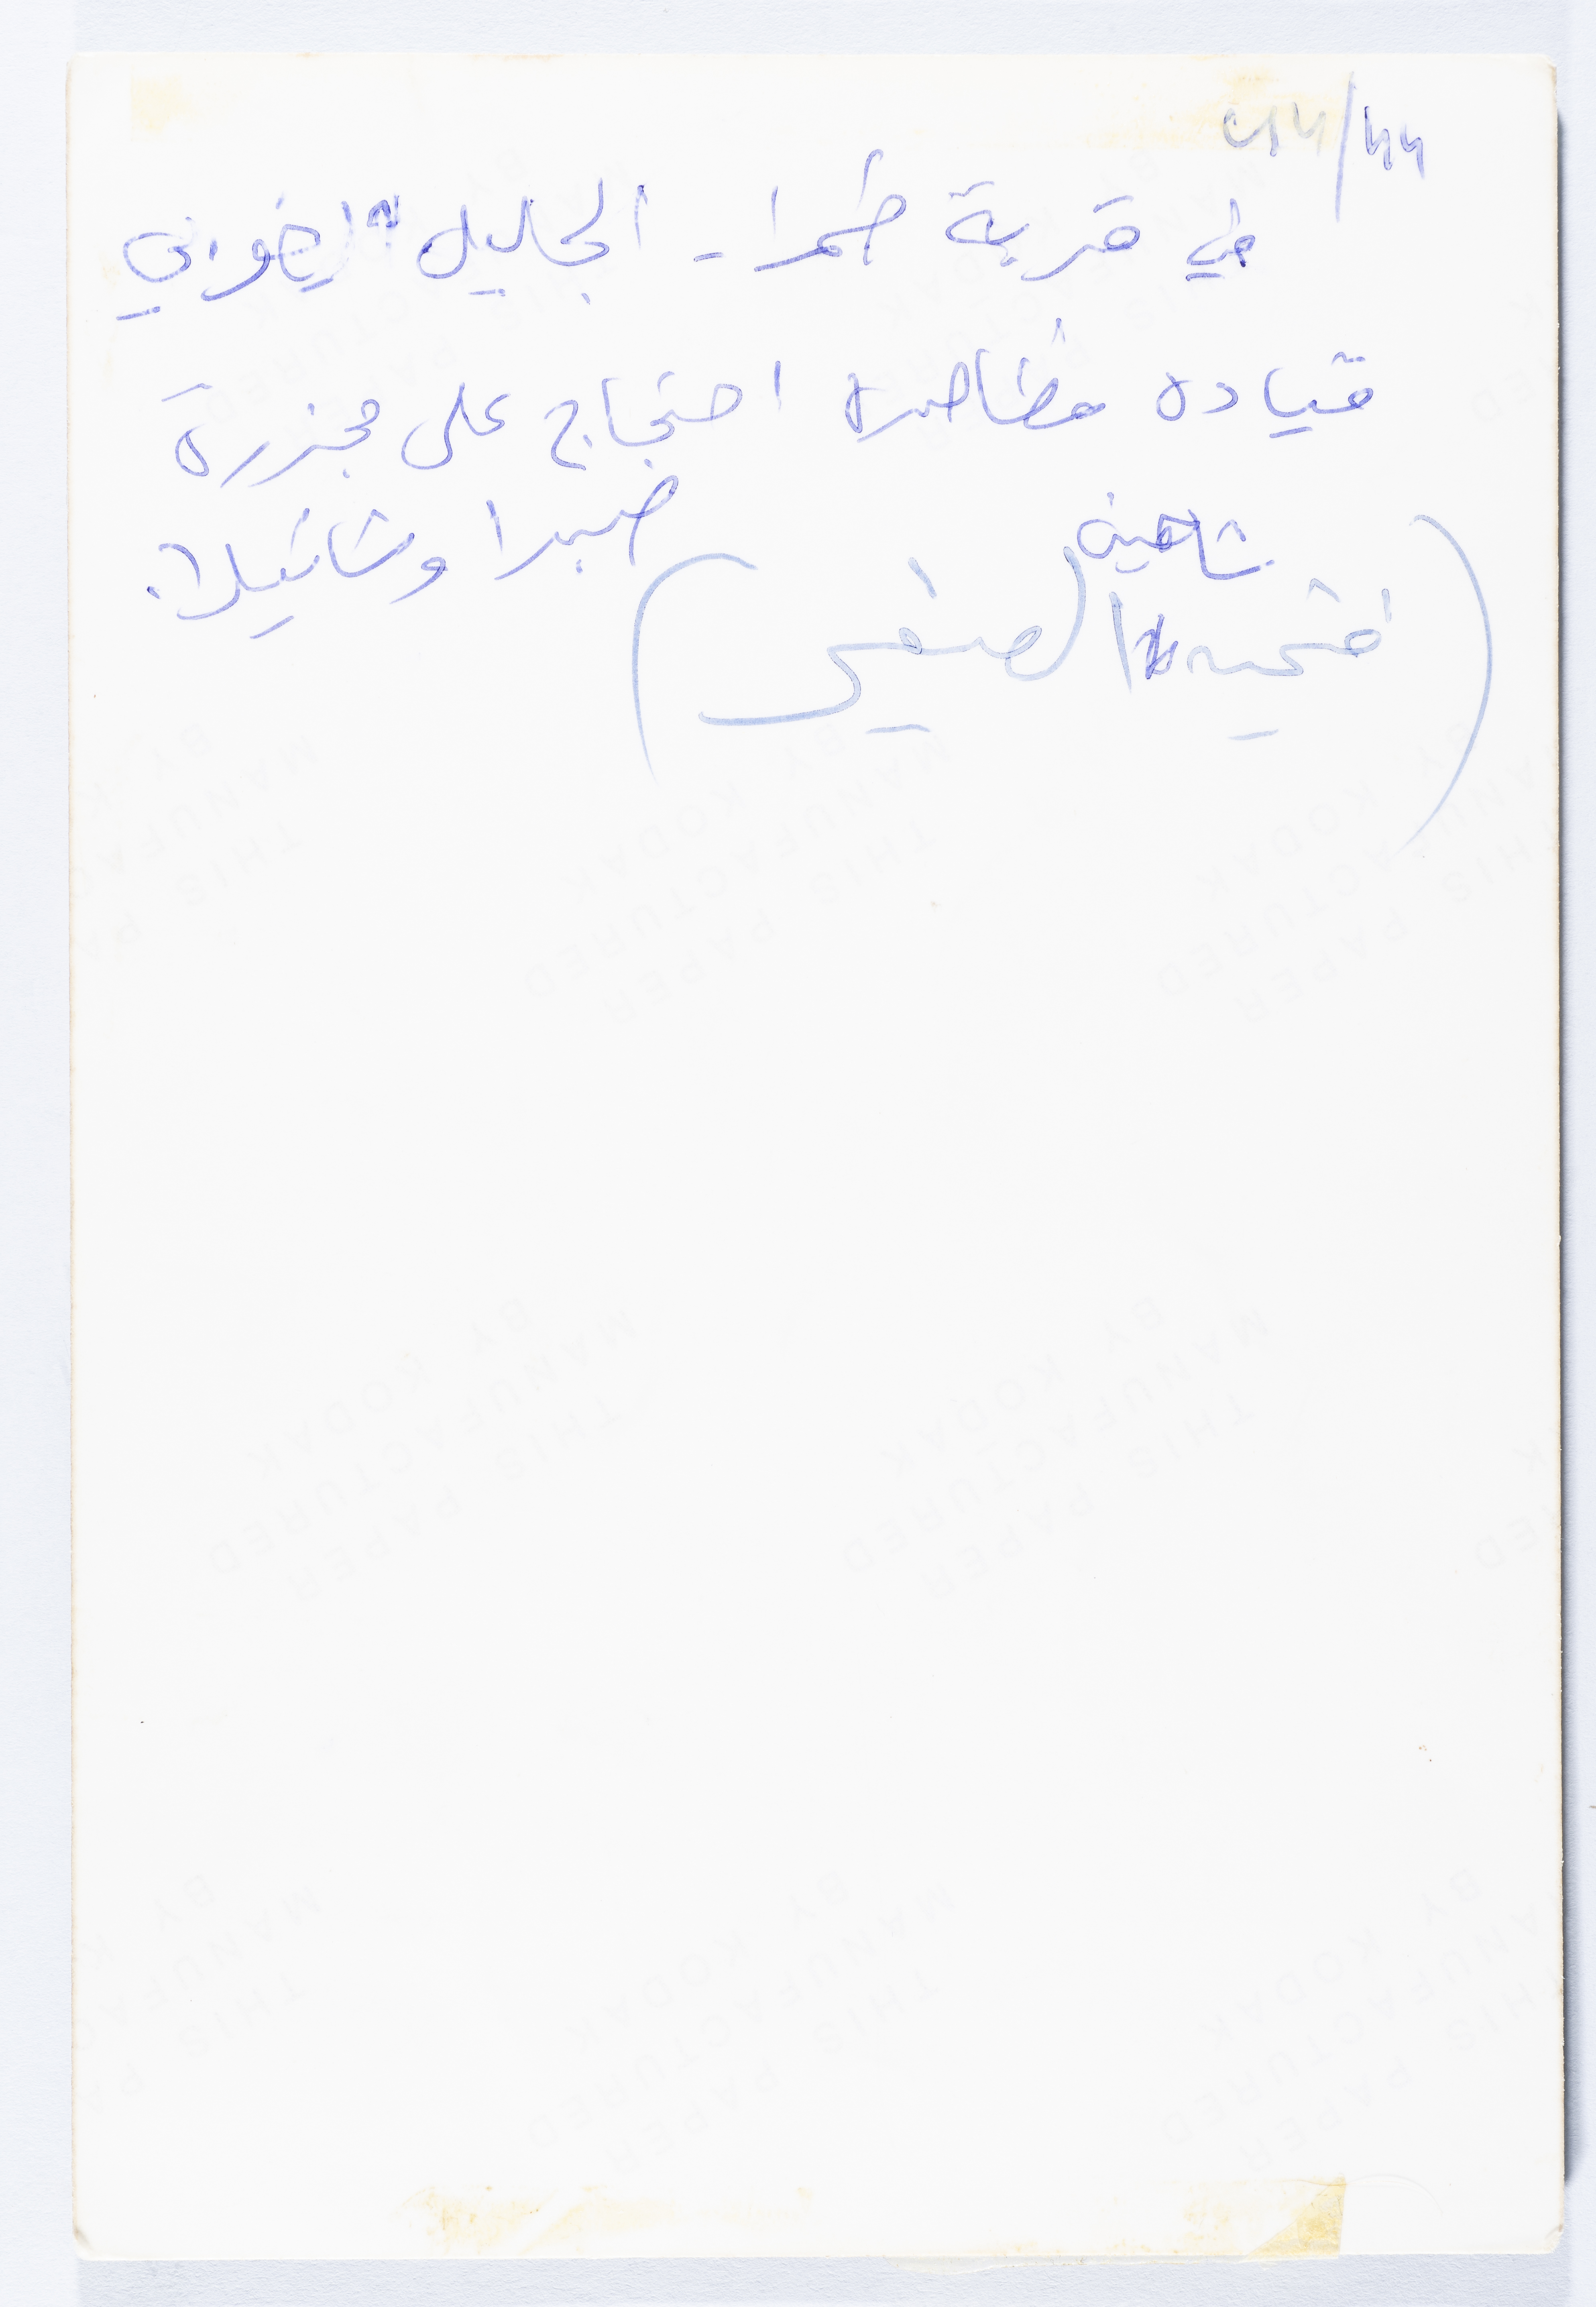 في قرية طمرا - الجليل الغربي
قيادة مظاهرة احتجاج على مجزرة
صبرا وشاتيلا.
شاهين
(فتحية الصفي)
THIS PAPER
MANUFACTURED
BY KODAK